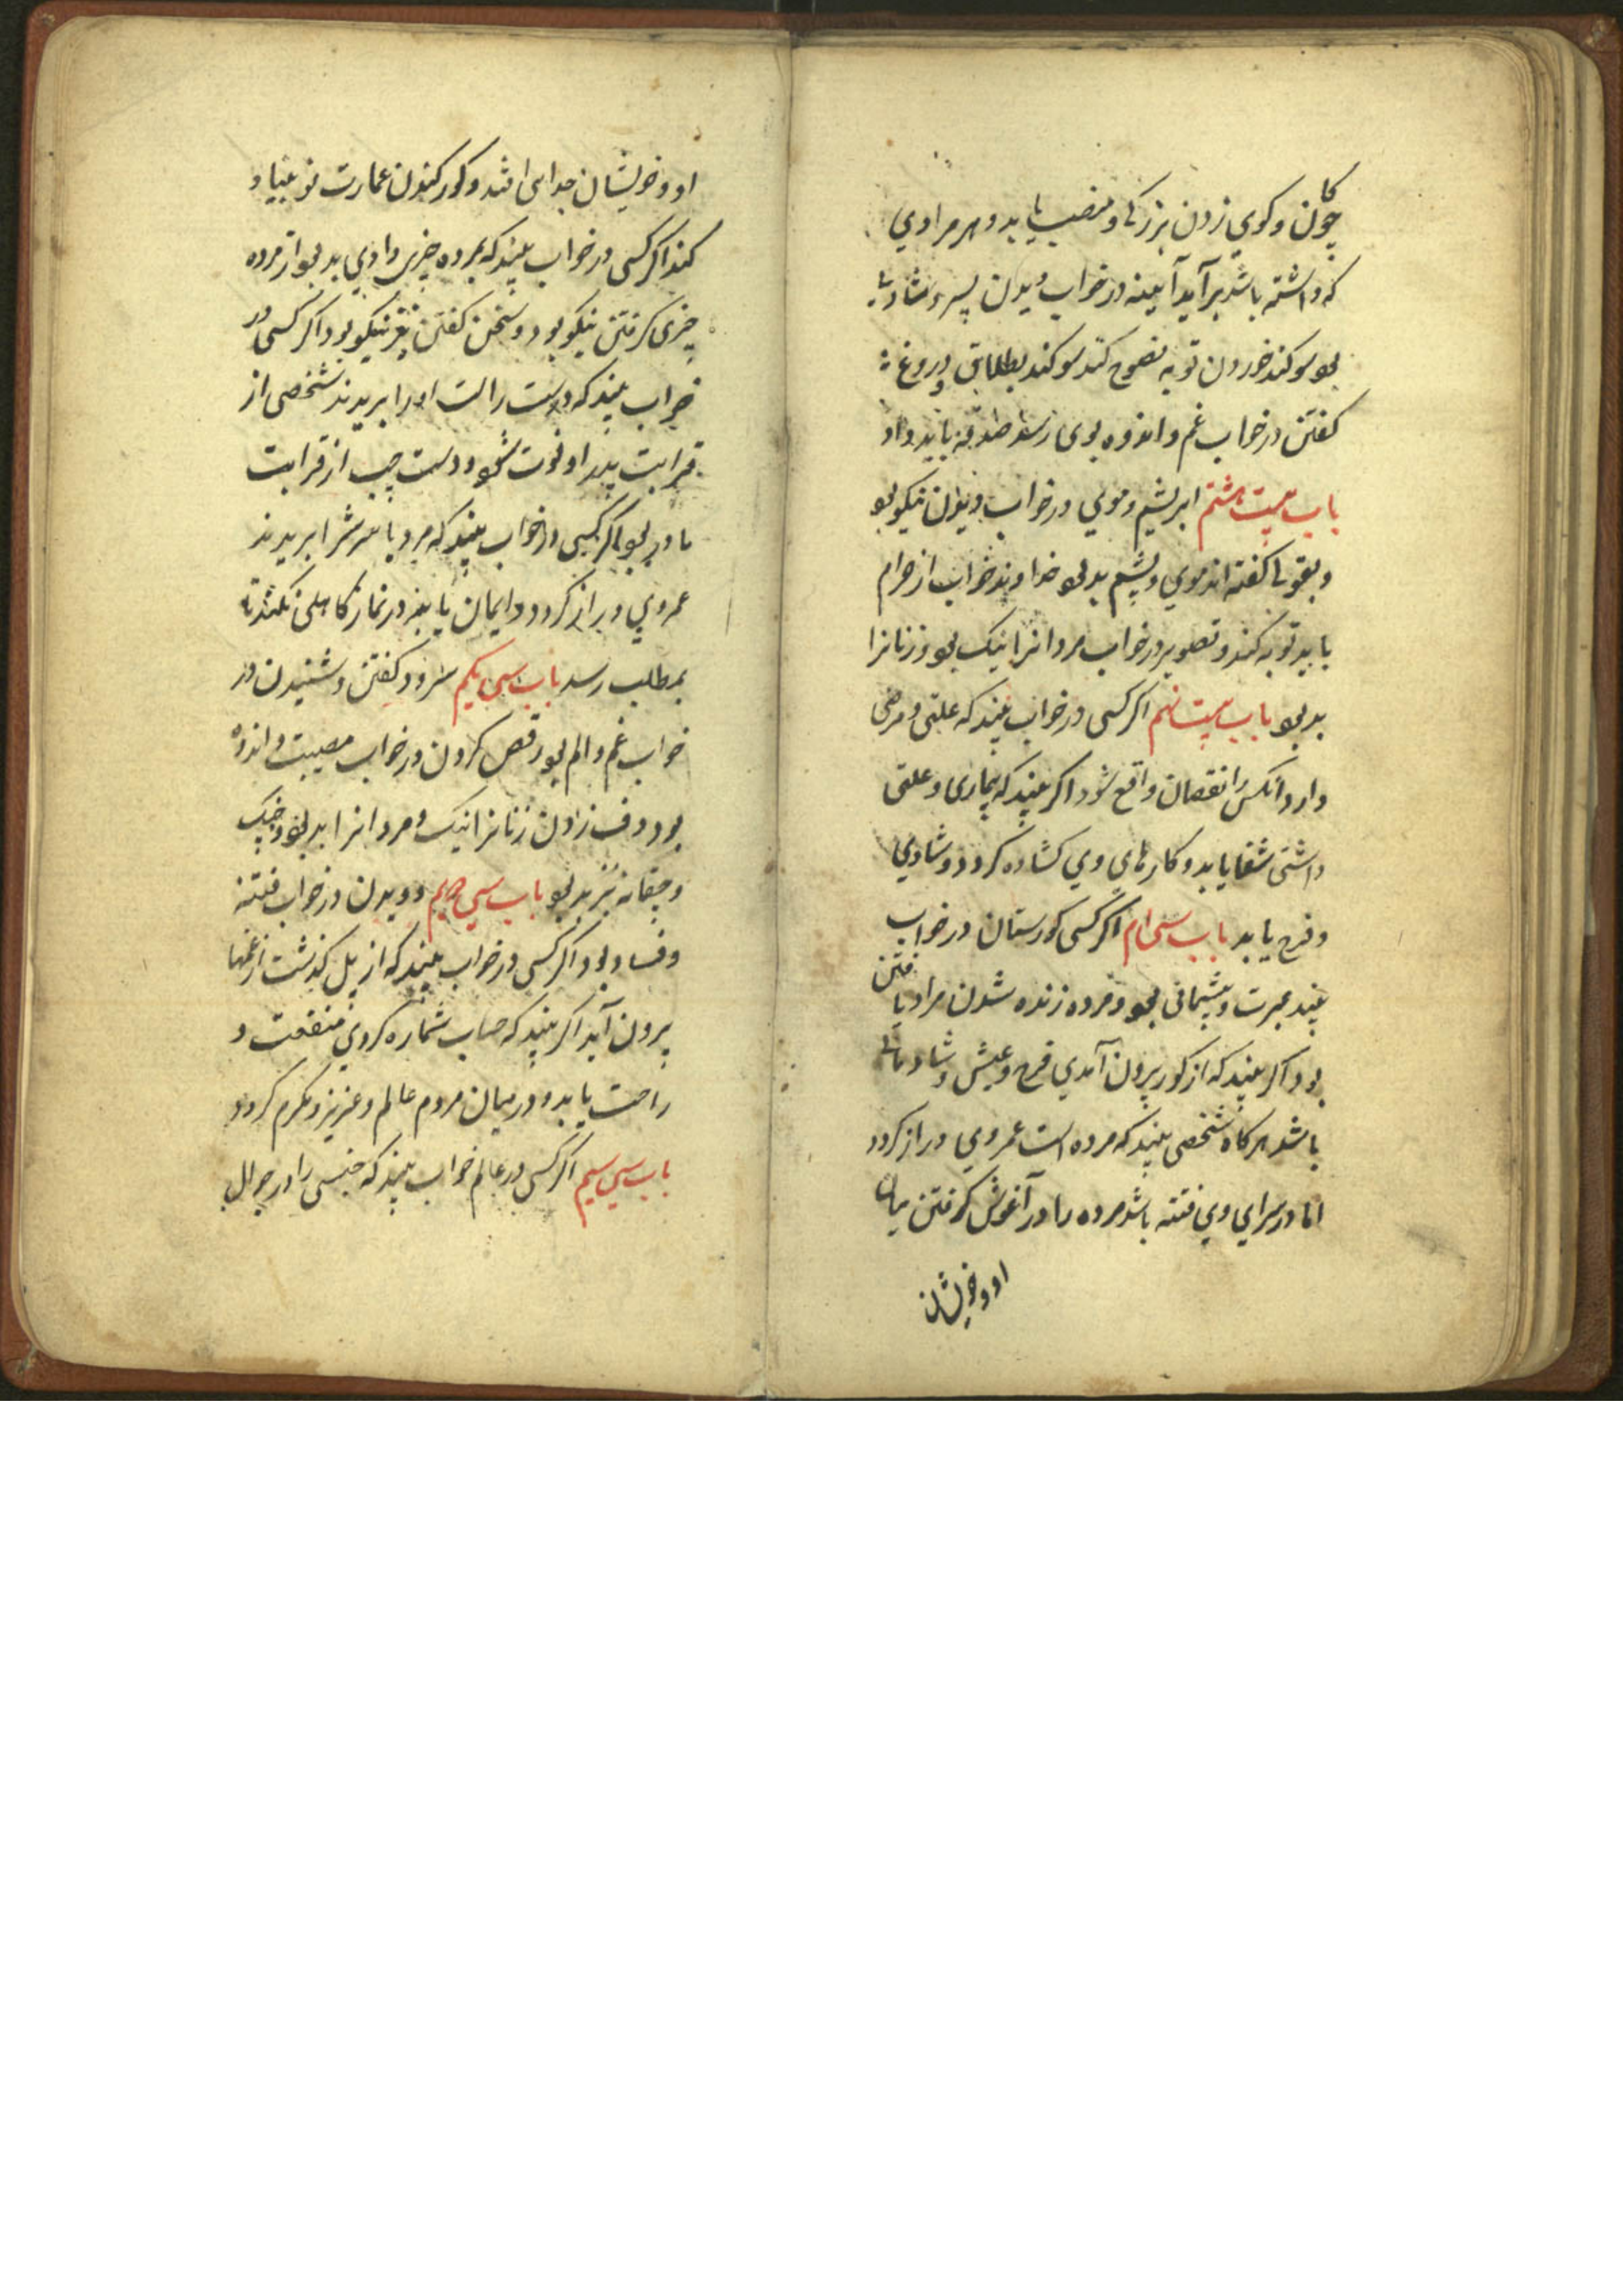 چوکان و کوي زدن بزرکی و منصب یابد و هر مرادي
که داشته باشد برآید آیینه در خواب دیدن پسر و شادیٔ
بود سوکند خوردن توبه نصوح کند سوکند بطلاق و دروغ
کفتن در خواب غم و اندوه بوی رسد صدقه باید داد
باب بیست هشتم ابریشم و موي در خواب دیدن نیکو بود
و بقولی کفته اند موي و پشم بد بود خداوند خواب از حرام
باید توبه کند و تصویر در خواب مردانرا نیک بود و زنانرا
بد بود باب بیست نهم اکر کسی در خواب بیند که علتی و مرضی
دارد آنکس را نقصان واقع شود اکر بیند که بیماری و علتی
داشتی شفا یابد و کارهای وي کشاده کردد و شادي
و فرح یابد باب سی ام اکر کسی کورستان در خواب
بیند عبرت و پشیمانی بود و مرده زنده شدن مراد یافتن
بود اکر بیند که از کور بیرون آمدي فرح و عیش و شادمانی
باشد هر کاه شخصی بیند که مرده است عمر وي دراز کردد
اما در سراي وي فتنه باشد مرده را در آغوش کرفتن میان
او و خویشان
او و خویشان جدایی افتد و کور کندن عمارت نو بنیاد
کند اکر کسی در خواب بیند که بمرده چیزی دادي بد بود از مرده
چیزی کرفتن نیکو بود و سخن کفتن نیز نیکو بود اکر کسی در
خواب بیند که دست راست او را بریدند شخصی از
قرابت پدر او فوت شود و دست چپ از قرابت
مادر بود اکر کسی در خواب بیند که مرد یا سرش را بریدند
عمر وي دراز کردد و ایمان یابد و در نماز کاهلی نکند تا
بمطلب رسد باب سی یکم سرود کفتن و شنیدن در
خواب غم و الم بود رقص کردن در خواب مصیبت و اندوه
بود دف زدن زنانرا نیک و مردانرا بد بود و چنک
و چغانه نیز بد بود باب سی دویم دویدن در خواب فتنه
و فساد بود اکر کسی در خواب بیند که از پل کذشت از غمها
بیرون آید اکر بیند که حساب شماره کردي منفعت و
راحت یابد و در میان مردم عالم و عزیز و مکرم کردد
باب سی سیم اکر کسی در عالم خواب بیند که جنسی را در جوال